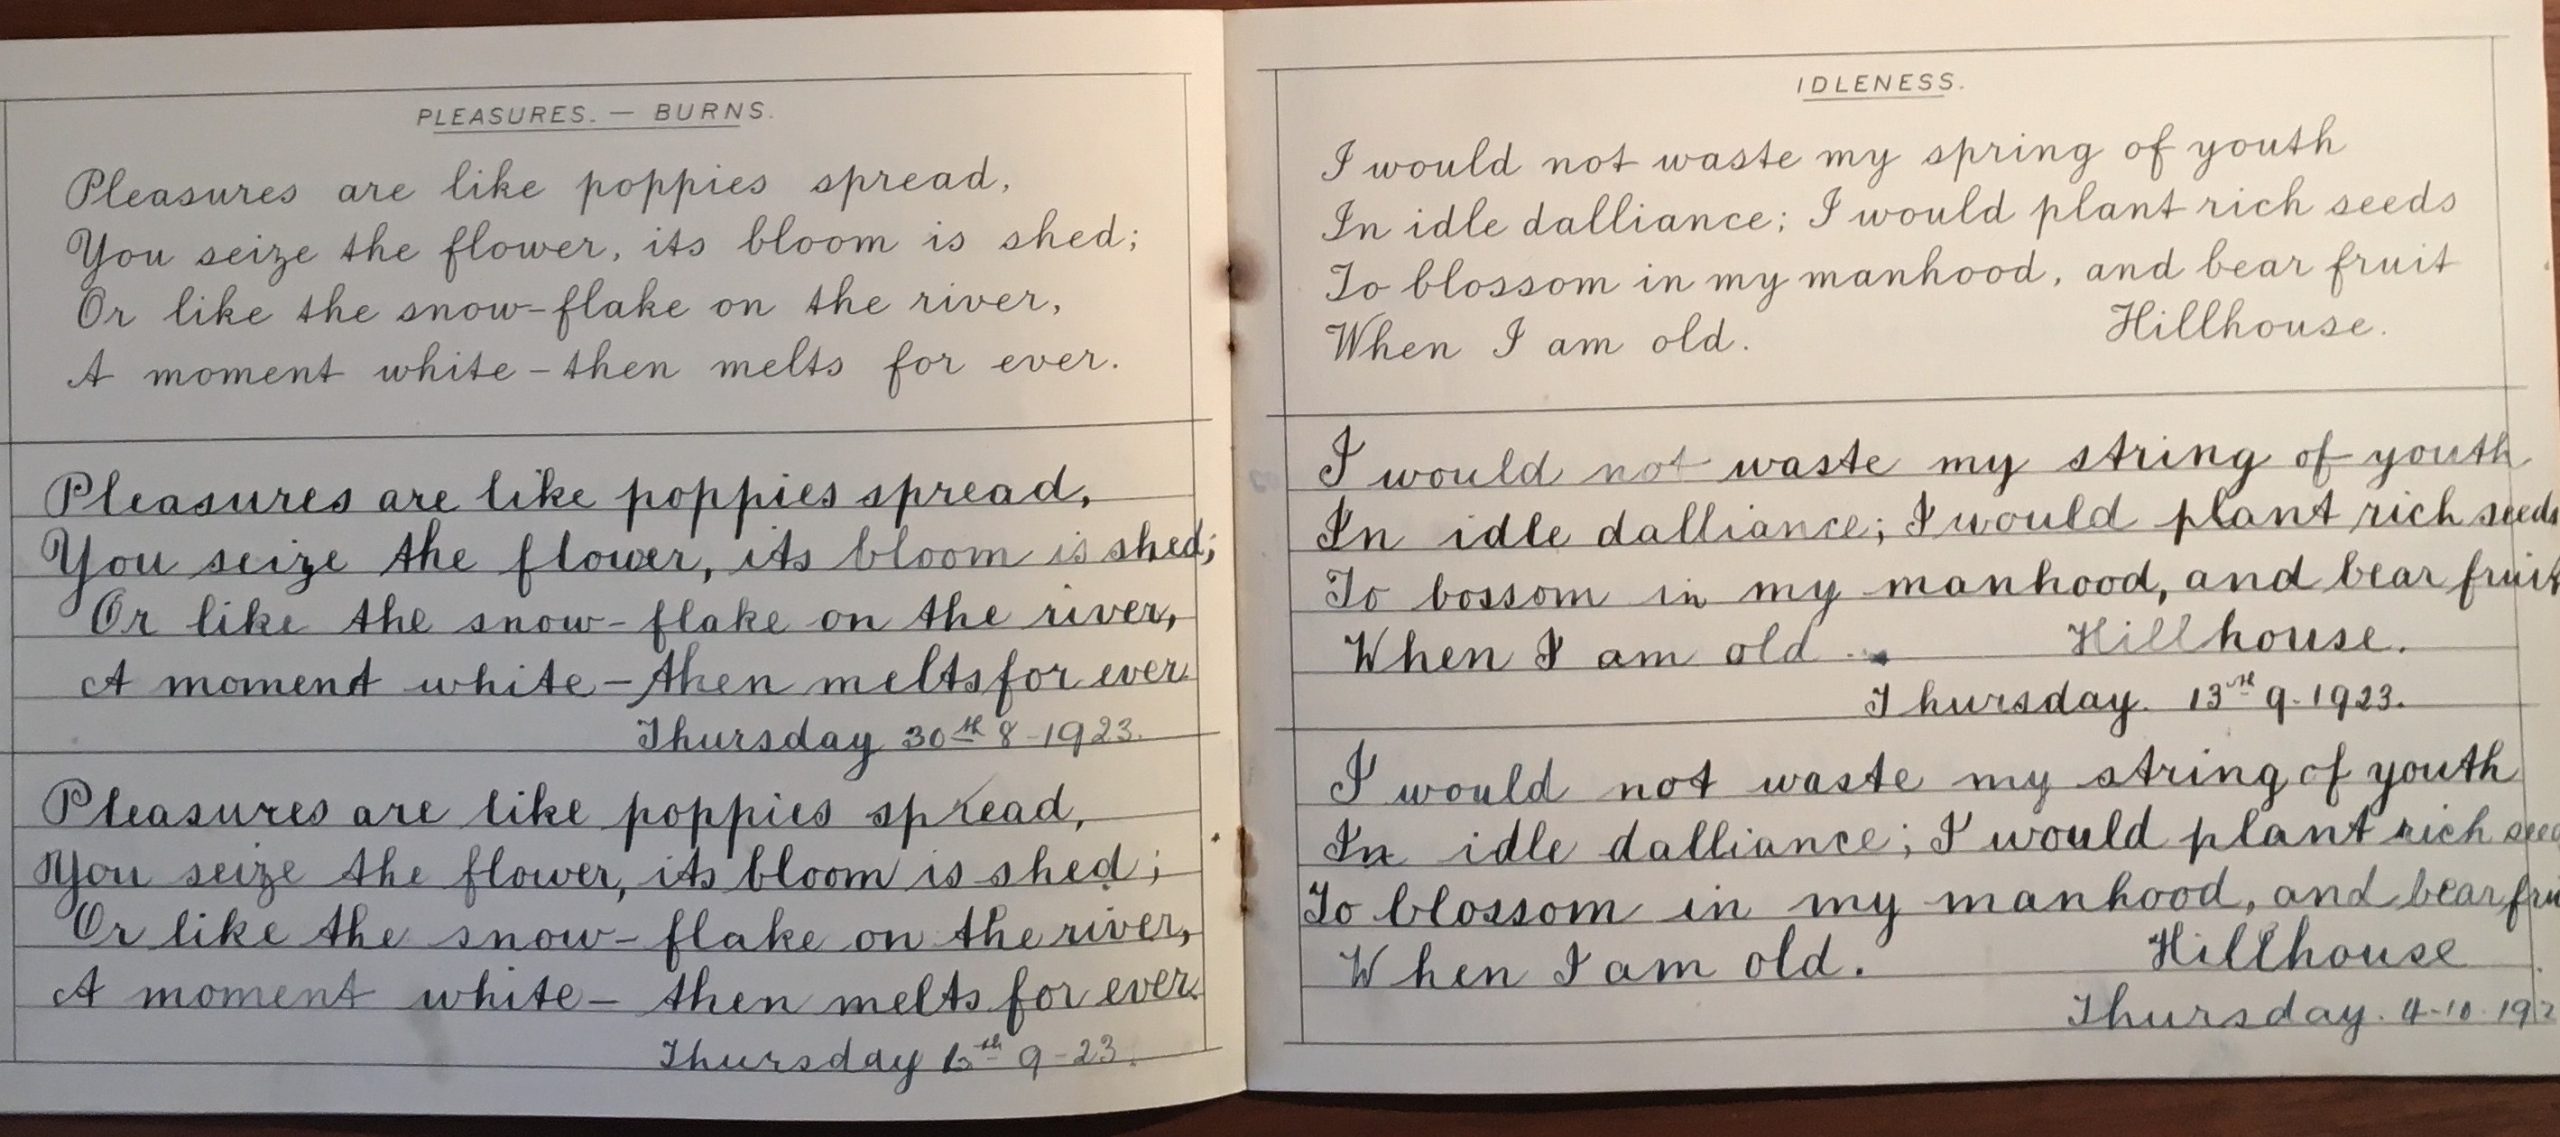 PLEASURES. — BURNS.
Pleasures are like poppies spread,
You seize the flower, its bloom is shed;
Or like the snow-flake on the river,
A moment white - then melts for ever.
Pleasures are like poppies spread,
You seize the flower, its bloom is shed;
Or like the snow-flake on the river,
A moment white - then melts for ever
Thursday 30th 8-1923.
Pleasures are like poppies spread,
You seize the flower, its bloom is shed;
Or like the snow-flake on the river,
A moment white - then melts for ever.
Thursday th 9-23.
IDLENESS.
I would not waste my spring of youth
In idle dalliance; I would plant rich seeds
To blossom in my manhood, and bear fruit
When I am old. Hillhouse.
I would not waste my string of youth
In idle dalliance; I would plant rich seeds
To bossom in my manhood, and bear fruit
When I am old. Hillhouse.
Thursday. 13th 9-1923.
I would not waste my string of youth
In idle dalliance; I would plant rich see
To blossom in my manhood, and bear fru
When I am old. Hillhouse
Thursday. 4-10-192